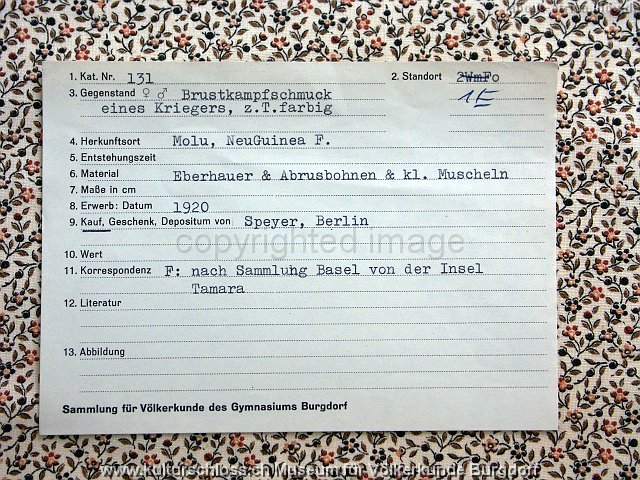 1. Kat. Nr. 131 2. Standort 2WmFo
3. Gegenstand ♀ ♂ Brustkampfschmuck 1E
eines Kriegers, z.T.farbig
4. Herkunftsort Molu, NeuGuinea F.
5. Entstehungszeit
6. Material Eberhauer & Abrusbohnen & kl. Muscheln
7. Maße in cm
8. Erwerb: Datum 1920
9. Kauf, Geschenk, Depositum von Speyer, Berlin
copyrighted image
10. Wert
11. Korrespondenz F: nach Sammlung Basel von der Insel
Tamara
12. Literatur
13. Abbildung
Sammlung für Völkerkunde des Gymnasiums Burgdorf
www.kulturschloss.ch Museum für Völkerkunde Burgdorf